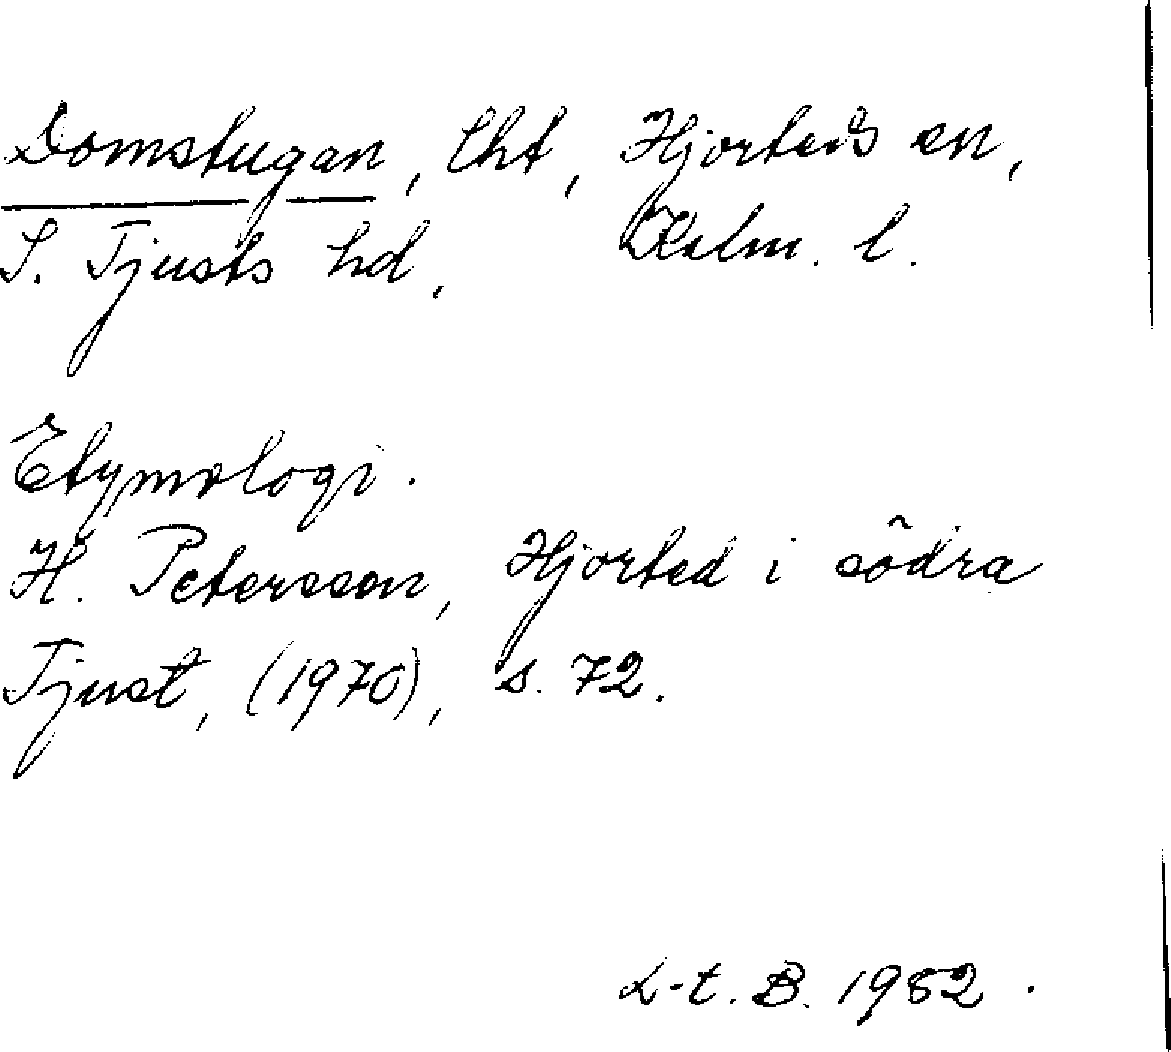 Domstugan, lht, Hjorteds sn,
S. Tjusts hd, Kalm. l.
Etymologi.
H. Petersson, Hjorted i södra
Tjust, (1970), s. 72.
L-t. B. 1982.